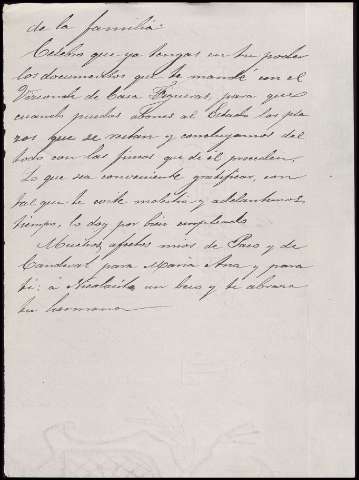 de la familia.
Celebro que ya tengas en tu poder
los documentos que te mandé con el
Vizconde de Casa Figueras, para que
cuando puedas abones al Estado los pla
zos que se restan y concluyamos del
todo con las fincas que de él proceden.
Lo que sea conveniente gratificar, con
tal que te evite molestia y adelantemos
tiempo, lo doy por bien empleado.
Muchos afectos mios de Paco y de
para Maria Ana y para
ti: a Nicolasita un beso y te abraza
tu hermano